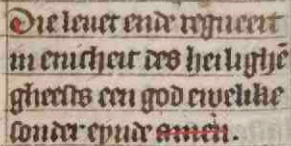 Die leuet ende regneert
in enicheit des heilighē
gheests een god ewelike
sonder eynde amen.